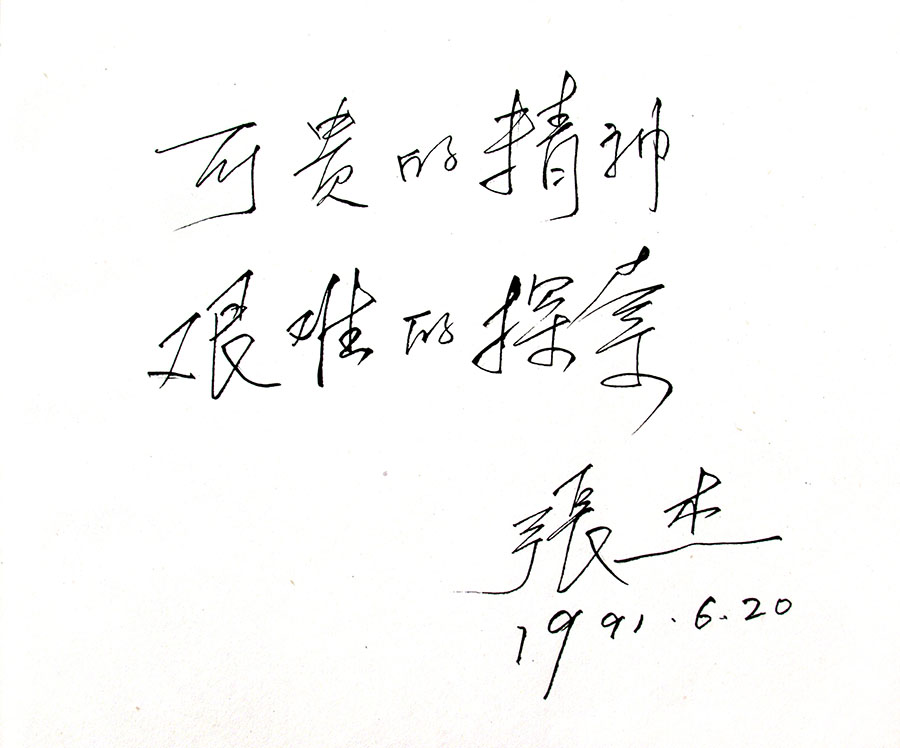 可贵的精神
艰难的探索
張杰
1991.6.20